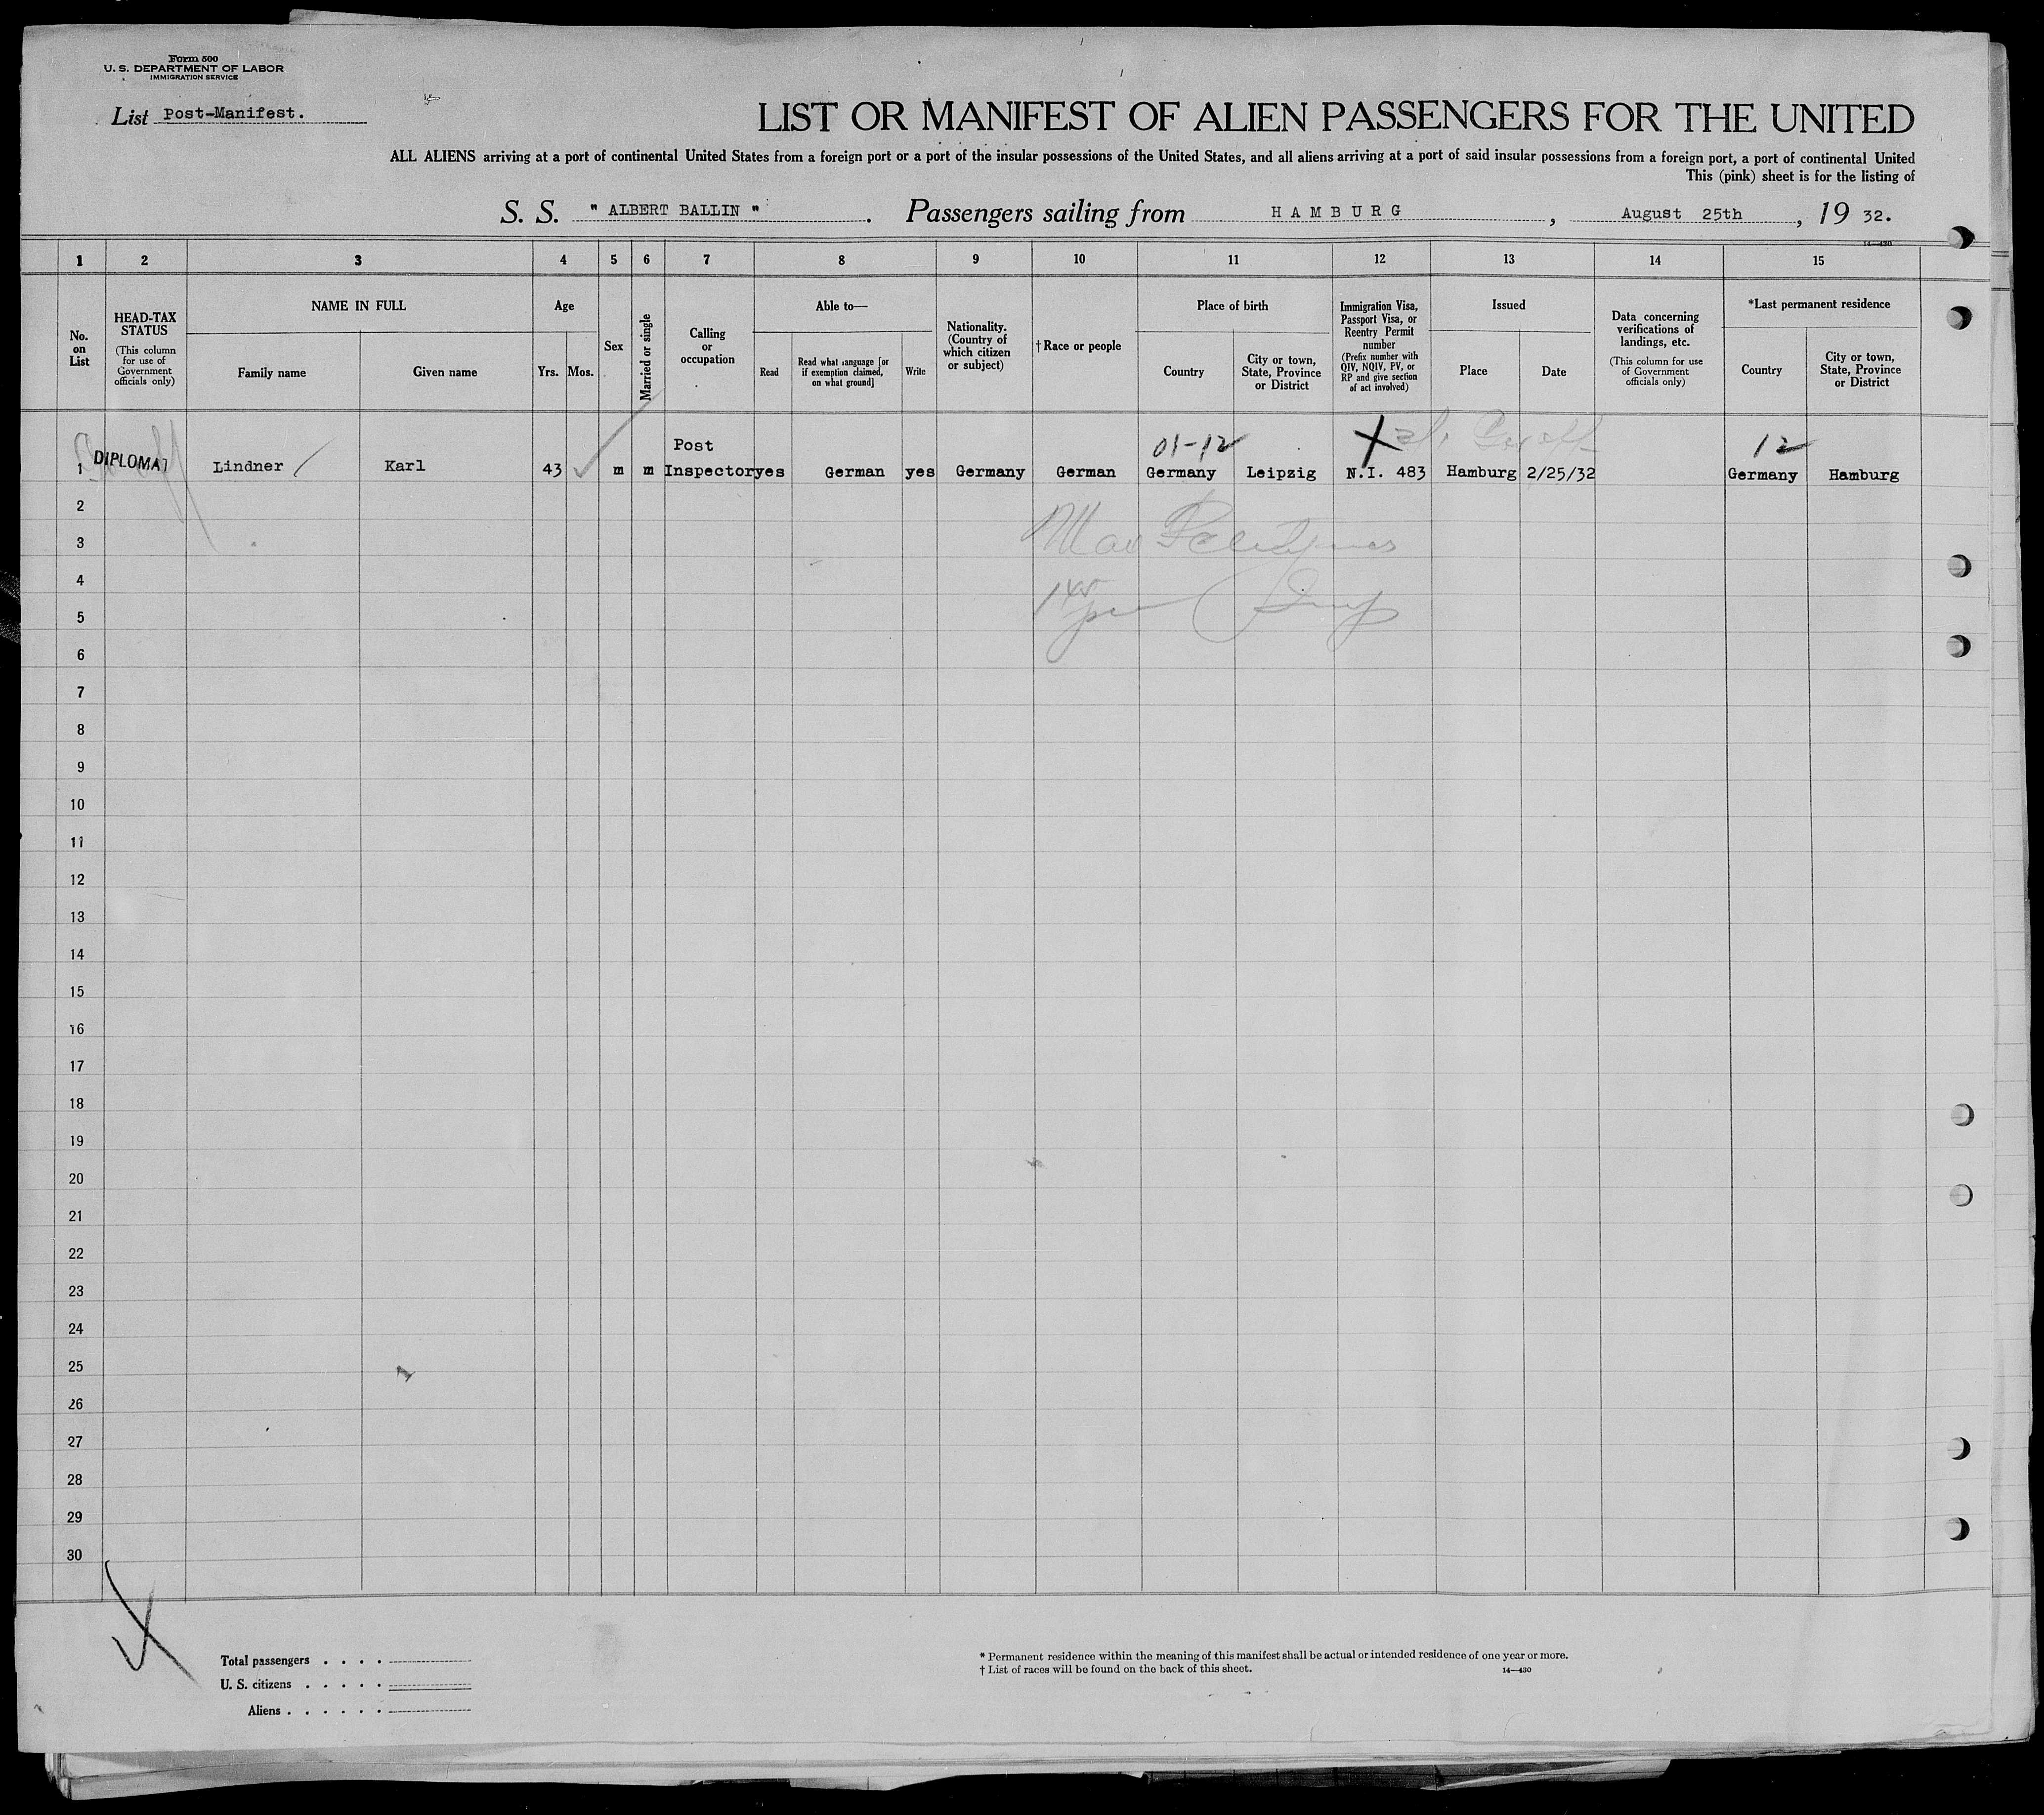 Form 500
U. S. DEPARTMENT OF LABOR
IMMIGRATION SERVICE
List Post-Manifest.
LIST OR MANIFEST OF ALIEN PASSENGERS FOR THE UNITED
ALL ALIENS arriving at a port of continental United States from a foreign port or a port of the insular possessions of the United States, and all aliens arriving at a port of said insular possessions from a foreign port, a port of continental United
This (pink) sheet is for the listing of
S. S. " ALBERT BALLIN " . Passengers sailing from HAMBURG , August 25th , 19 32.
14—430
1 2 3 4 5 6 7 8 9 10 11 12 13 14 15
No. on List
HEAD-TAX STATUS
(This column for use of Government officials only)
NAME IN FULL
Family name Given name
Age
Yrs. Mos.
Sex
Married or single
Calling or occupation
Able to—
Read Read what language [or if exemption claimed, on what ground] Write
Nationality. (Country of which citizen or subject)
†Race or people
Place of birth
Country City or town, State, Province or District
Immigration Visa, Passport Visa, or Reentry Permit number
(Prefix number with QIV, NQIV, PV, or RP and give section of act involved)
Issued
Place Date
Data concerning verifications of landings, etc.
(This column for use of Government officials only)
*Last permanent residence
Country City or town, State, Province or District
01-12 12
1 DIPLOMAT Lindner Karl 43 m m Post Inspector yes German yes Germany German Germany Leipzig N.I. 483 Hamburg 2/25/32 Germany Hamburg
2
3
4
5
6
7
8
9
10
11
12
13
14
15
16
17
18
19
20
21
22
23
24
25
26
27
28
29
30
Total passengers . . . .
U. S. citizens . . . . .
Aliens . . . . . .
* Permanent residence within the meaning of this manifest shall be actual or intended residence of one year or more.
† List of races will be found on the back of this sheet.
14—430